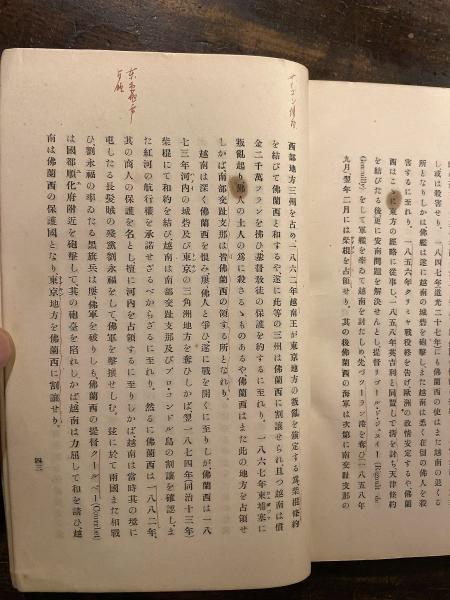 し或は殺害せり。一八四七年(道光二十七年)にも佛蘭西の使はまた越南の退くる
所となりしかば佛艦は遂に越南の城砦を砲撃し、また越南は悉く在留の佛人を殺
害するに至れり。一八五六年クリミヤ戰役終を告げ歐洲の政情安定するや、佛蘭
西はこゝに東方の經略に從事し、一八五八年英吉利と同盟して清を討ち、天津條約
を結びたる後更に安南問題を解決せむとし、提督リゴール、ド、ジュヌイー(Rigault de
Genouilly)をして軍艦を率ゐて越南を討たしめ、先づツーラン港を奪ひ(一八五八年
九月)翌年二月には柴棍を占領せり。其の後佛蘭西の海軍は次第に南交趾支那の
西部地方三州を占め、一八六二年越南王が東京地方の叛亂を鎭定する爲、柴棍條約
を結びて佛蘭西と和するや、遂に此等の三州は佛蘭西に割讓せられ、且つ越南は償
金二千萬フランを拂ひ、基督教徒の保護を約するに至れり。一八六七年柬埔塞に
叛亂起り、佛人の土人の爲に殺さるゝものあるや、佛蘭西はまた此の地方を占領せ
しかば、南部交趾支那は皆佛蘭西の領する所となれり。
越南は深く佛蘭西を恨み、屢佛人と爭ひ、遂に戰を開くに至りしが、佛蘭西は一八
七三年河内の城砦及び東京の三角洲地方を奪ひしかば、翌一八七四年(同治十三年)
柴棍にて和約を結び、越南は南部交趾支那及びプロ、コンドル島の割讓を確認し、ま
た紅河の航行權を承諾せざるべからざるに至れり。然るに佛蘭西は一八八二年、
其の商人の保護を名とし、擅に河内を占領するに至りしかば、越南は當時其の境に
屯したる長髮賊の殘黨劉永福をして、佛軍を擊攘せしむ。茲に於て兩國また相戰
ひ、劉永福の率ゐたる黑旗兵は屢佛軍を破りしも、佛蘭西の提督クールベー(Courbet)
は國都順化府附近を砲撃して、其の砲臺を陷れしかば、越南は力屈して和を請ひ、越
南は佛蘭西の保護國となり、東京地方を佛蘭西に割讓せり。
四三